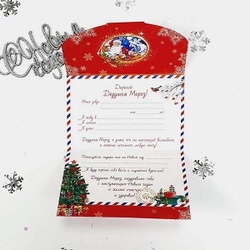 С Новым годом
Дорогой
Дедушка Мороз!
Меня зовут
Я живу в
Я
Дедушка Мороз, я знаю, что ты настоящий Волшебник
и можешь исполнить любую мечту!
Пожалуйста, подари мне на Новый год
Я буду хорошо себя вести и слушаться взрослых!
Дедушка Мороз, поздравляю тебя
с наступающим Новым годом
и желаю счастья
и здоровья!